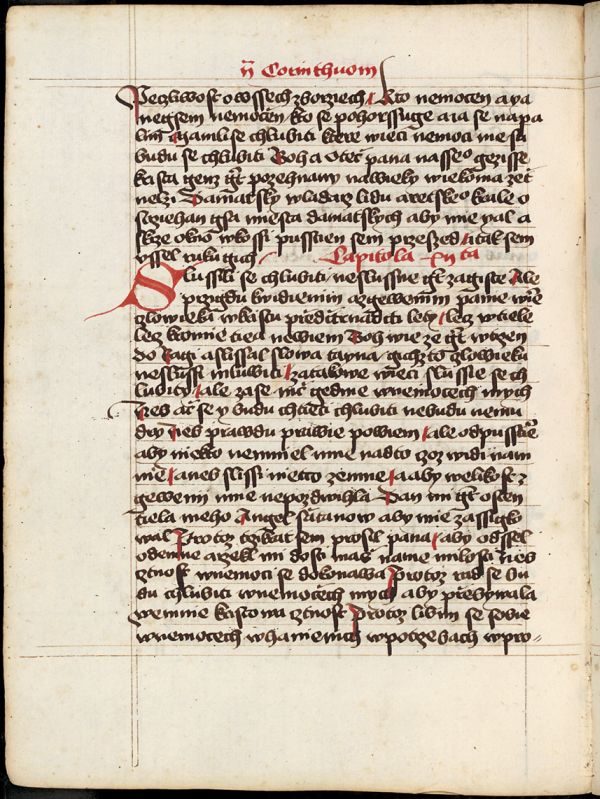 ii Corinthuom
Peczliwost o wssech zborziech kto nemoten a ya
netgsem nemoten kto se pohorssuge a ia se napa
lim mamli se chlubiti ktere wieci nemoci me su
budu se chlubiti Boh a otecz pana nasseo gezisse
krista genz gt pozehnany na wieky wiekoma zet
nelzi Damatsky wladarz lidu aretskeo krale o
strziehan tgsa miesta damatskych aby mie yal a
skrze okno w kossi pusstien sem przes zed a tak sem
ussel ruku gich Capitola
Slussili se chlubiti neslussne gt zagiste Ale
przigdu k widienim a zgewenim panie wie
czlowieka w kristu przed cztrnadcti lety lecz w tiele
lecz kromie tiela newiem Boh wie ze gt wtrzen
do ragi a slissal slowa tayna gichzto czlowieku
neslussi mluwiti za takowe wieci slussie se ch
lubity ale za se nic gedine w nemotech mych
Neb ac se y budu chtieti chlubiti nebudu nemu
dry Neb prawdu prawie powiem ale odpusstie
aby niekto nemniel mne nadto czoz widi na mi
mie aneb slissi nietco ze mne a aby welikost z
gewenii mne nepozdwihla Dan mi gt osten
tiela meho Angel satanow aby mie zassigko
wal Protoz trzikrat sem prosil pana aby odssel
ode mne a rzekl mi dosti mas na me milosti Neb
cztnost w nemoci se dokonawa Protoz rad se bu
du chlubiti w nemotech mych aby przebywala
we mnie kristowa cztnost Protoz libim se sobie
w nemotech w hanienich w potrzebach w pro=